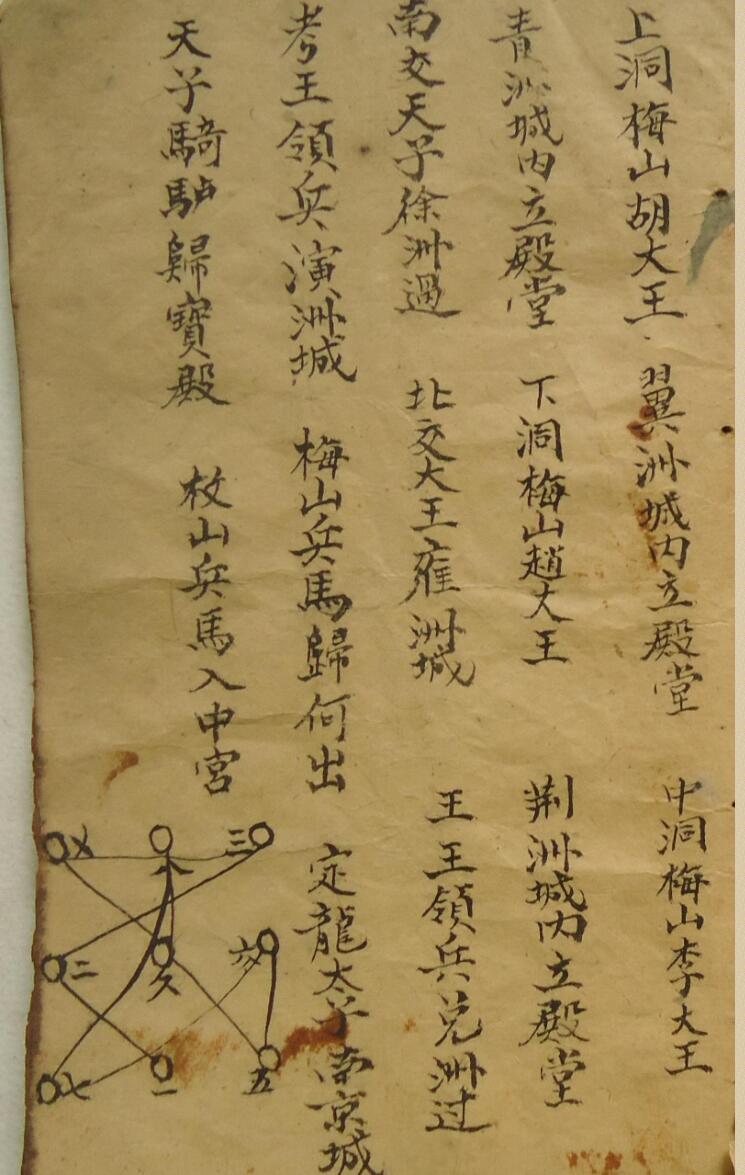 上洞梅山胡大王 翼洲城内立殿堂 中洞梅山李大王
青洲城内立殿堂 下洞梅山趙大王 荆洲城内立殿堂
南交天子徐洲過 北交大王雍洲城 王王領兵兑洲过
考王領兵演洲城 梅山兵馬歸何出 定龍太子南京城
天子騎馿歸寳殿 枚山兵馬入中宮
三 八 乂
六 久 二
五 一 七